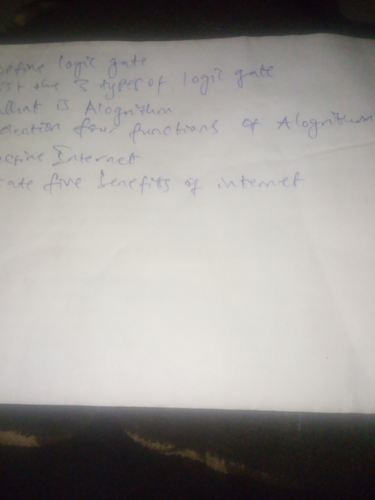 define logic gate
list the 3 types of logic gate
What is Alogrithm
mention four functions of Alogrithm
define Internet
state five benefits of internet